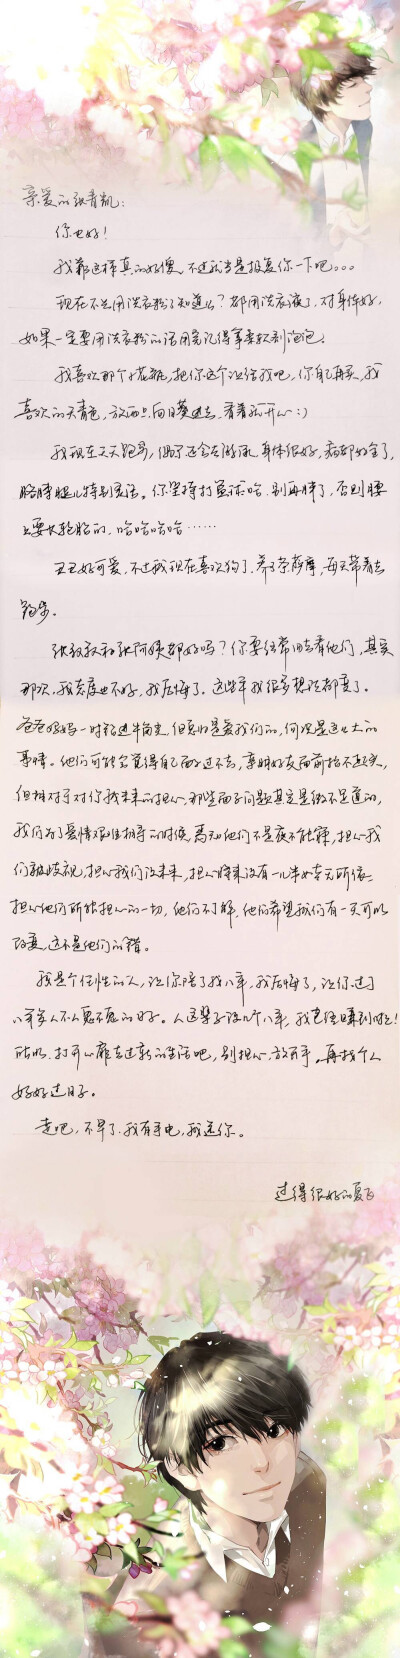 亲爱的张青凯：
你也好！
我都这样真的好傻，不过就当是报复你一下吧。。。
现在不兴用洗衣粉了知道么？都用洗衣液了，对身体好，
如果一定要用洗衣粉的话用完记得拿柔软剂泡泡。
我喜欢那个小花瓶，把你这个让给我吧，你自己再买，我
喜欢的天青色，放两只向日葵进去，看着就开心:)
我现在天天跑步，偶尔还会去游泳，身体很好，病都好全了，
胳膊腿儿特别灵活。你坚持打篮球哈，别再胖了，否则腰
上要长轮胎的，哈哈哈哈……
丑丑好可爱，不过我现在喜欢狗了，养了条萨摩，每天带着去
跑步。
张叔叔和张阿姨都好吗？你要经常回去看他们，其实
那次，我态度也不好，我后悔了。这些年我很多想法都变了。
爸爸妈妈一时钻进牛角尖，但真的是爱我们的，何况是这么大的
事情。他们可能会觉得自己面子过不去，亲朋好友面前抬不起头，
但相对于对你我未来的担心，那些面子问题其实是微不足道的，
我们为了爱情艰难相守的时候，焉知他们不是夜不能寐，担心我
们被歧视，担心我们没未来，担心将来没有一儿半女老无所依，
担心他们所能担心的一切，他们不了解，他们希望我们有一天可以
改变，这不是他们的错。
我是个任性的人，让你陪了我八年，我后悔了，让你过了
八年穿人不人鬼不鬼的日子。人这辈子没几个八年，我已经赚到时了！
所以，打开心扉去过新的生活吧，别担心，放开手，再找个人
好好过日子。
走吧，不早了，我有手电，我送你。
过得很好的夏飞